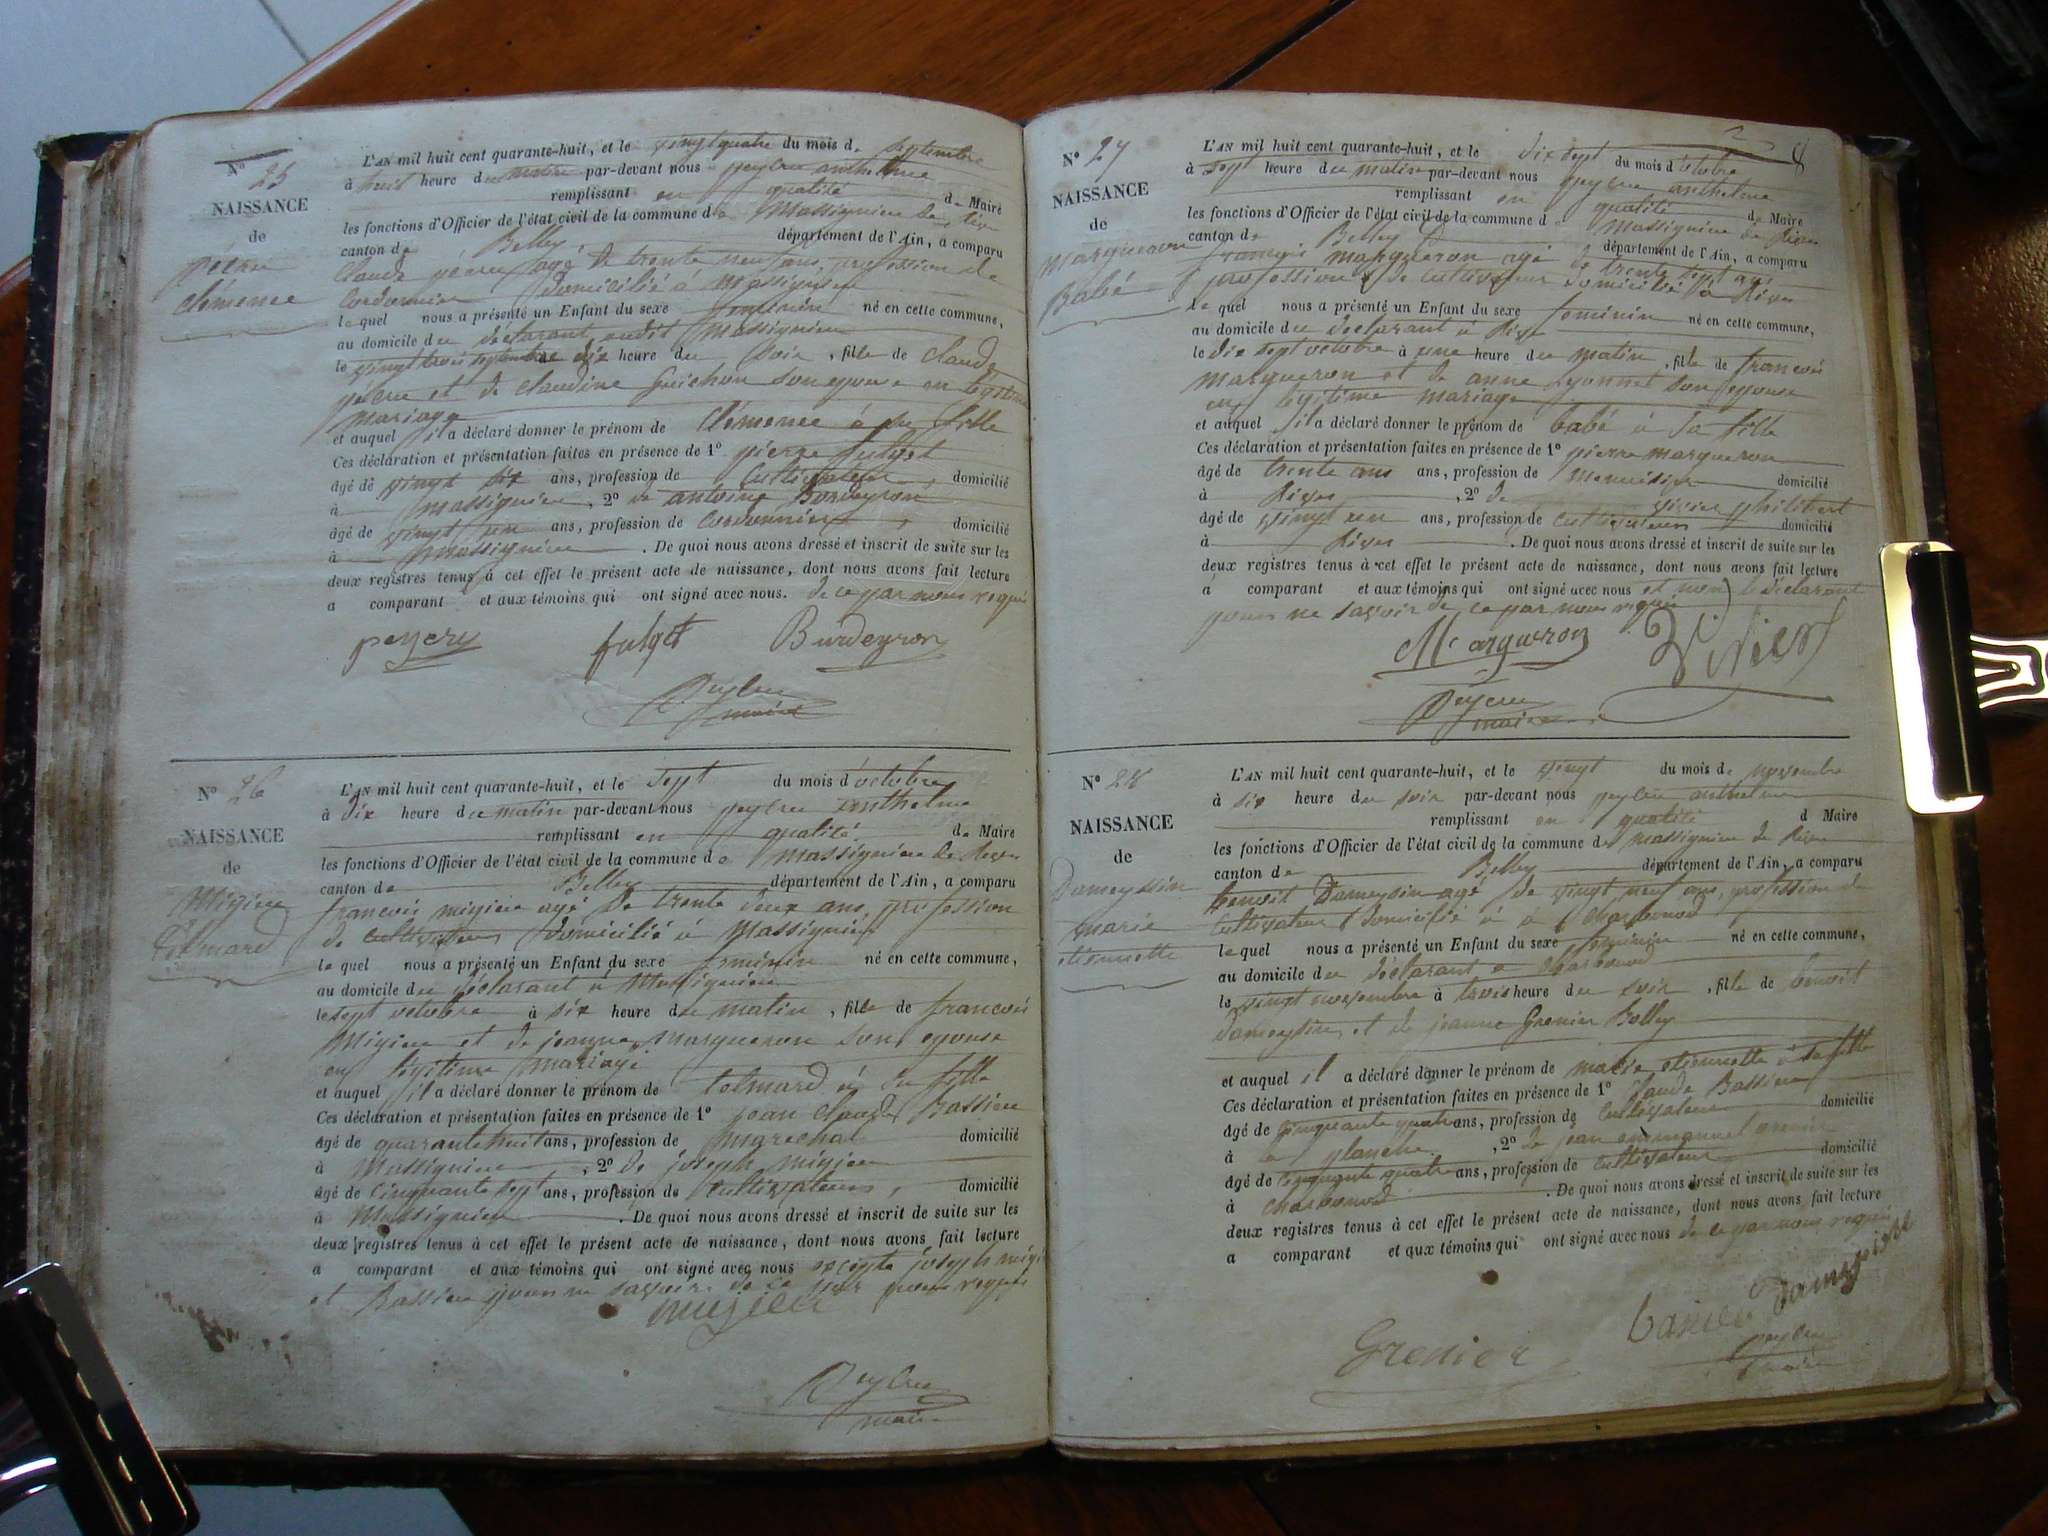 N° 25
NAISSANCE
de
clémence
L'AN mil huit cent quarante-huit, et le vingt quatre du mois de septembre
à huit heure du matin par-devant nous peyleu anthelme
remplissant en qualité de Maire
les fonctions d'Officier de l'état civil de la commune de Massignieu de Rives
canton de Belley département de l'Ain, a comparu
Claude agé de trente neuf ans, profession de
Cordonnier domicilié a Massignieu
le quel nous a présenté un Enfant du sexe feminin né en cette commune,
au domicile du déclarant audit Massignieu
le vingt trois septembre dix heure du soir, fille de claude
et de claudine Guichon son epouse en legitime
mariage
et auquel il a déclaré donner le prénom de Clémence à sa fille
Ces déclaration et présentation faites en présence de 1° pierre fulget
âgé de vingt six ans, profession de Cultivateur, domicilié
à massignieu, 2° de antoine Burdeyron
âgé de vingt un ans, profession de Cordonnier, domicilié
à massignieu. De quoi nous avons dressé et inscrit de suite sur les
deux registres tenus à cet effet le présent acte de naissance, dont nous avons fait lecture
a comparant et aux témoins qui ont signé avec nous. de ce par nous requis
fulget Burdeyron
Peyleu
maire
N° 26
NAISSANCE
de
Migieu
L'AN mil huit cent quarante-huit, et le sept du mois d'octobre
à dix heure du matin par-devant nous peyleu anthelme
remplissant en qualité de Maire
les fonctions d'Officier de l'état civil de la commune de Massignieu de Rives
canton de Belley département de l'Ain, a comparu
francois migieu agé de trente deux ans, profession
de cultivateur domicilié à Massignieu
le quel nous a présenté un Enfant du sexe feminin né en cette commune,
au domicile du déclarant à Massignieu
le sept octobre à six heure du matin, fille de francois
Migieu et de jeanne Margueron son epouse
en legitime mariage
et auquel il a déclaré donner le prénom de à sa fille
Ces déclaration et présentation faites en présence de 1° jean claude Bassieu
âgé de quarante huit ans, profession de marechal domicilié
à Massignieu, 2° de joseph migieu
âgé de cinquante sept ans, profession de cultivateur, domicilié
à Massignieu. De quoi nous avons dressé et inscrit de suite sur les
deux registres tenus à cet effet le présent acte de naissance, dont nous avons fait lecture
a comparant et aux témoins qui ont signé avec nous excepté joseph migieu
et Bassieu pour ne savoir de ce par nous requis
migieu
Peyleu
maire
8
N° 27
NAISSANCE
de
Margueron
Babé
L'AN mil huit cent quarante-huit, et le dix sept du mois d'octobre
à sept heure du matin par-devant nous peyleu anthelme
remplissant en qualité de Maire
les fonctions d'Officier de l'état civil de la commune de Massignieu de Rives
canton de Belley département de l'Ain, a comparu
françois margueron agé de trente sept ans
profession de cultivateur domicilié à Rives
le quel nous a présenté un Enfant du sexe feminin né en cette commune,
au domicile du déclarant à Rives
le dix sept octobre à une heure du matin, fille de francois
margueron et de anne peyonnet son epouse
en legitime mariage
et auquel il a déclaré donner le prénom de babé à sa fille
Ces déclaration et présentation faites en présence de 1° pierre margueron
âgé de trente ans ans, profession de menuisier domicilié
à Rives, 2° de vivier philibert
âgé de vingt un ans, profession de cultivateur domicilié
à Rives. De quoi nous avons dressé et inscrit de suite sur les
deux registres tenus à cet effet le présent acte de naissance, dont nous avons fait lecture
à comparant et aux témoins qui ont signé avec nous et non le déclarant
pour ne savoir de ce par nous requis
Margueron Vivier
Peyleu
maire
N° 28
NAISSANCE
de
Dameysin
marie
etiennette
L'AN mil huit cent quarante-huit, et le vingt du mois de novembre
à six heure du soir par-devant nous peyleu anthelme
remplissant en qualité d Maire
les fonctions d'Officier de l'état civil de la commune de massignieu de Rives
canton de Belley département de l'Ain, a comparu
benoit Dameysin agé de vingt neuf ans, profession de
Cultivateur domicilié à charbonod
le quel nous a présenté un Enfant du sexe feminin né en cette commune,
au domicile du déclarant a charbonod
le vingt novembre à trois heure du soir, fille de benoit
dameysin et de jeanne Grenier Belley
et auquel il a déclaré donner le prénom de marie etiennette à sa fille
Ces déclaration et présentation faites en présence de 1° claude Bassieu
âgé de cinquante quatre ans, profession de Cultivateur domicilié
à la planche, 2° de jean emmanuel grenier
âgé de cinquante quatre ans, profession de cultivateur domicilié
à charbonod. De quoi nous avons dressé et inscrit de suite sur les
deux registres tenus à cet effet le présent acte de naissance, dont nous avons fait lecture
a comparant et aux témoins qui ont signé avec nous de ce par nous requis
Grenier
Peyleu
maire